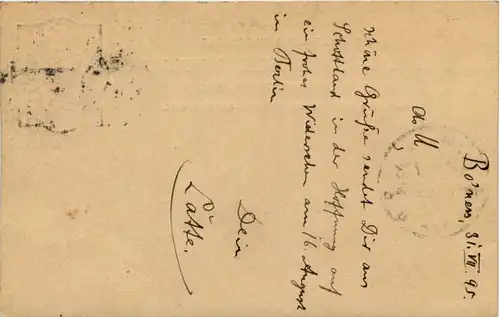 Bo'ness, 31. VII. 95.
d. U
Schöne Grüße sendet Dir aus
Schottland in der Hoffnung auf
ein frohes Wiedersehen am 16. August
in Berlin
Dein